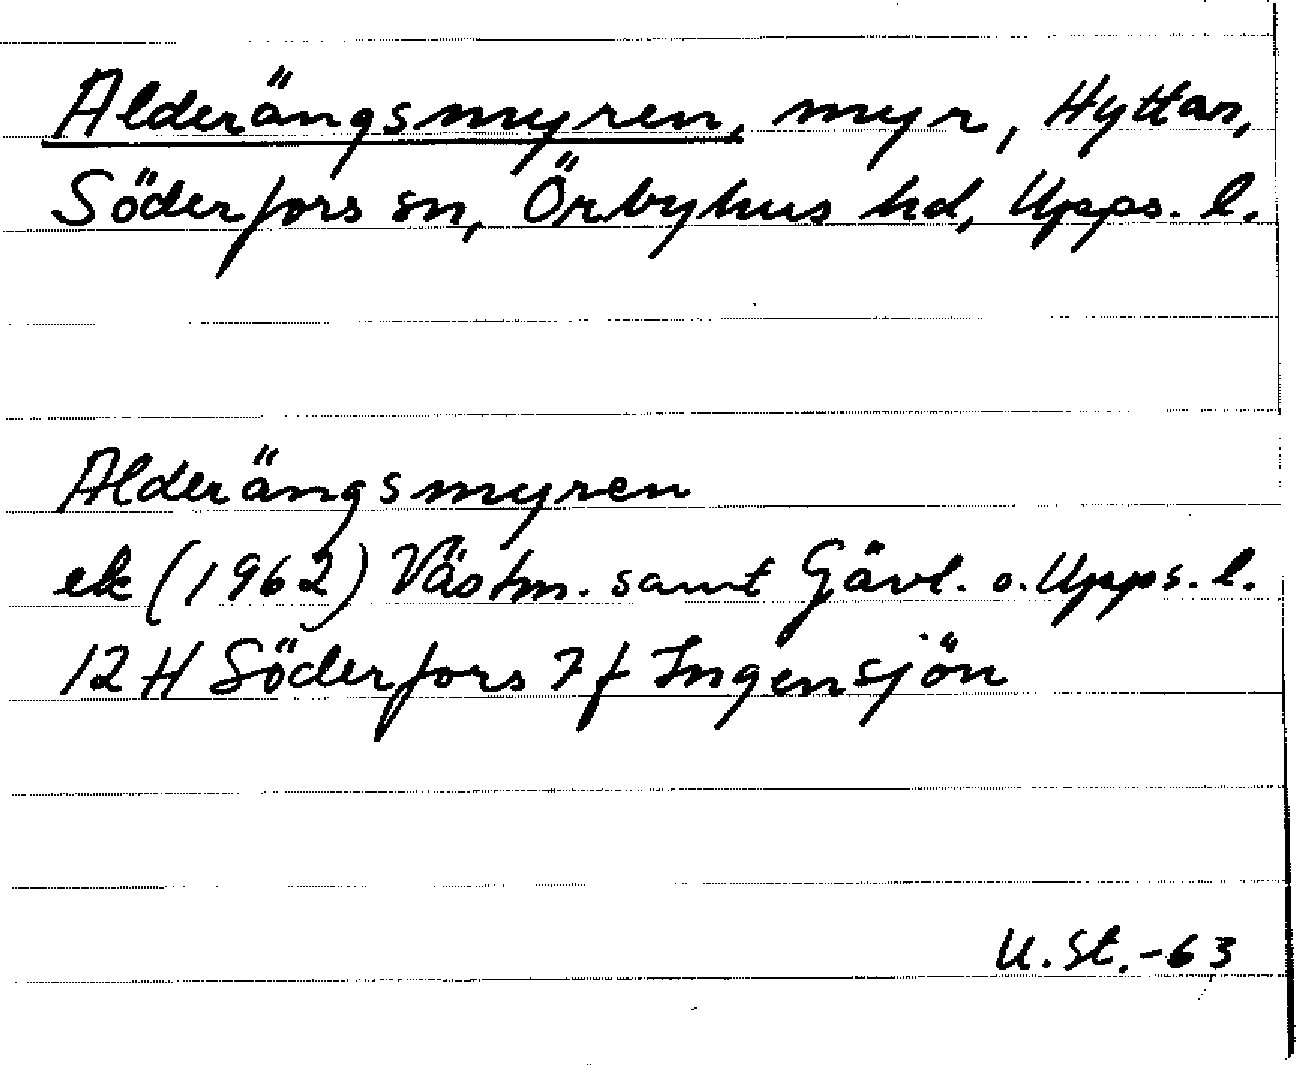 Alderängsmyren, myr, Hyttan,
Söderfors sn, Örbyhus hd, Upps. l.
Alderängsmyren
ek (1962) Västm. samt Gävl. o. Upps. l.
12 H Söderfors 7f Ingensjön
U. St. -63